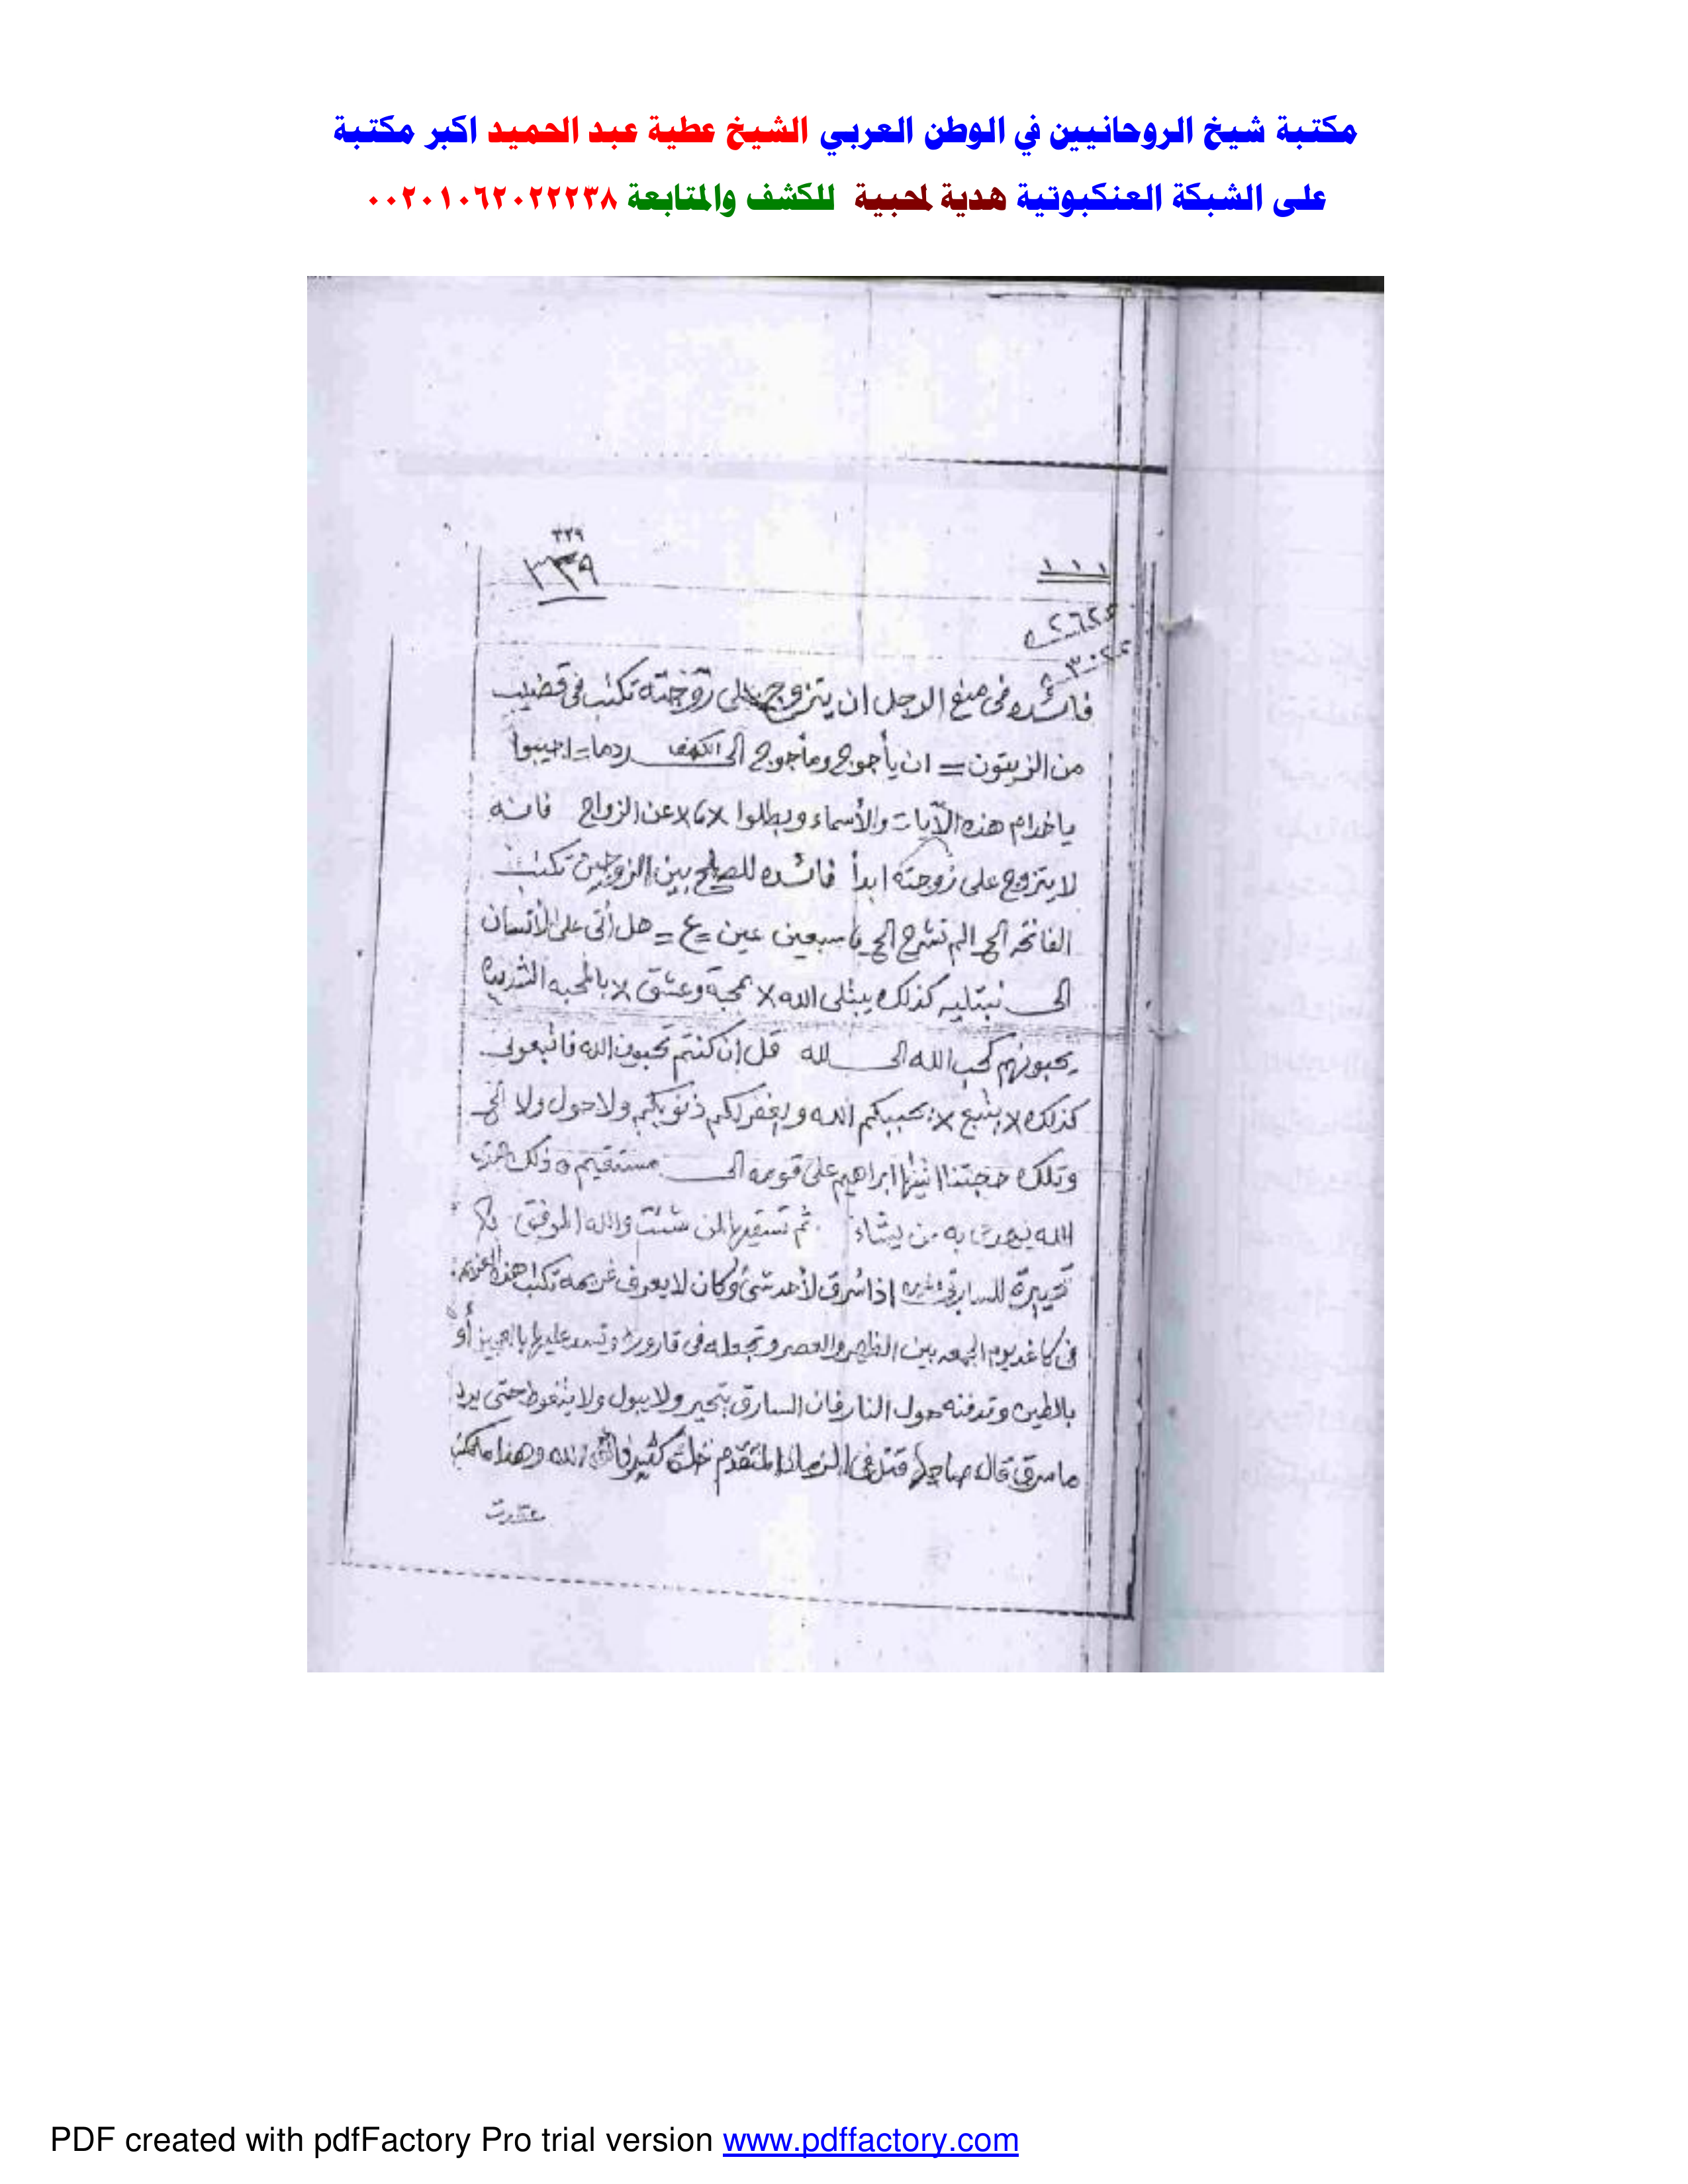 مكتبة شيخ الروحانيين في الوطن العربي الشيخ عطية عبد الحميد اكبر مكتبة
على الشبكة العنكبوتية هدية لمحبية للكشف والمتابعة ٠٠٢٠١٠٦٢٠٢٢٢٣٨
٣٣٩
٣٣٩
١١١
فائده فى منع الرجل ان يتزوج على زوجته تكتب فى قضيب
من الزيتون = ان يأجوج ومأجوج الى الكهف ردما = اجيبوا
ياخدام هذه الآيات والأسماء وبطلوا عن الزواج فانه
لا يتزوج على زوجته ابدأ فائده للصلح بين الزوجين تكتب
الفاتحه الخ الم نشرح الخ يا سبعين عين = ع = هل أتى على الأنسان
الى نبتليه كذلك يبتلى الله x بمحبة وعشق x بالمحبه الشديده
يحبونهم كحب الله الى لله قل إن كنتم تحبون الله فاتبعونى
كذلك x يتبع x يحببكم الله ويغفر لكم ذنوبكم ولا حول ولا الخ
وتلك حجتنا اتينها ابراهيم على قومه الى مستقيم وذلك هدى
الله يهدى به من يشاء ثم تسقيها لمن شئت والله الموفق
تحييرة للسارق اذا سرق لأحد شئ وكان لا يعرف غريمه تكتب هذه العزيمه
فى كاغد يوم الجمعه بين الظهر والعصر وتجعله فى قارورة وتسد عليها بالعجين أو
بالطين وتدفنه حول النار فان السارق يتحير ولا يبول ولا يتغوط حتى يرد
ما سرق قال صاحبها قتل فى الزمان المتقدم خلق كثير وهذا ما تكتب
PDF created with pdfFactory Pro trial version www.pdffactory.com